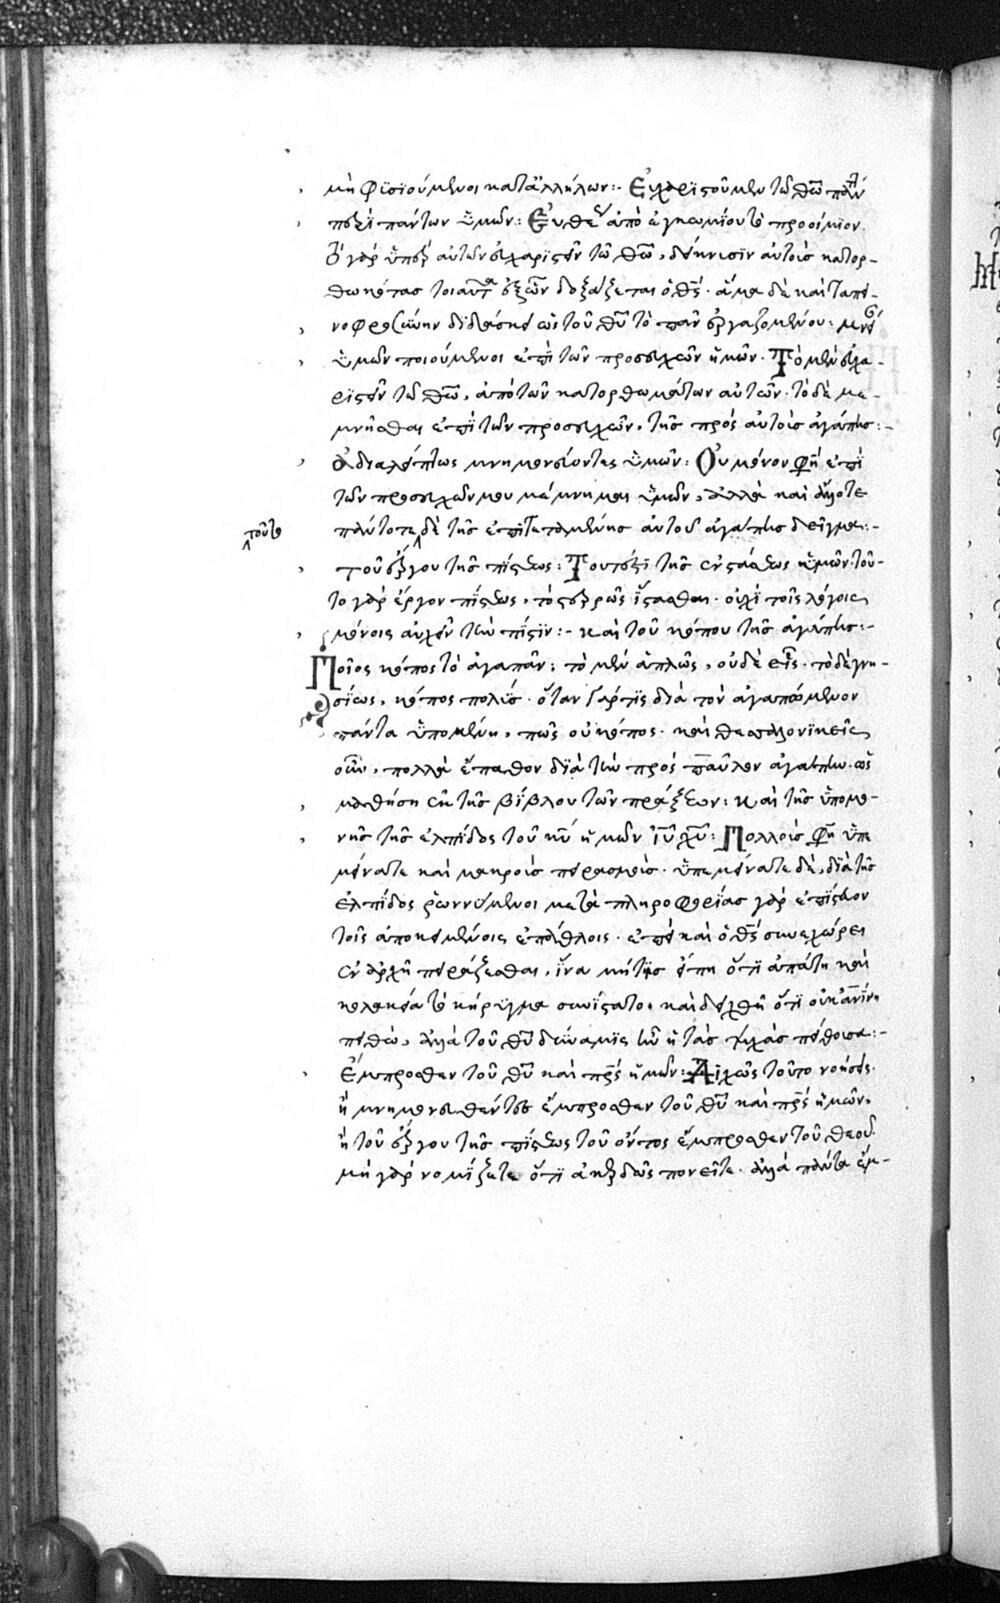 μὴ φϋσϊούμενοι κατ' ἀλλήλων:- Εὐχαριστοῦμεν τῶ θῶ πάντοτε
περὶ πάντων ὑμῶν: Εὐθὺς ἀπὸ ἐγκωμίου τὸ προοίμϊον.
τὸ γὰρ ὑπὲρ αὐτῶν εὐχαριστεῖν τῶ θῶ, δείκνυσϊν αὐτοὺς κατορ-
θωκότας τοιαῦτα ἐξ ὧν δοξάζεται ὁ θς. ἅμα δὲ καὶ ταπει-
νοφροσύνην διδάσκει ὡς τοῦ θυ τὸ πᾶν ἐργαζομένου: μνείαν
ὑμῶν ποιούμενοι ἐπὶ τῶν προσευχῶν ἡμῶν. Τὸ μὲν εὐχα-
ριστεῖν τῶ θῶ, ἀπὸ τῶν κατορθωμάτων αὐτῶν. τὸ δὲ με-
μνῆσθαι ἐπὶ τῶν προσευχῶν, τῆς πρὸς αὐτοὺς ἀγάπης:-
ἀδιαλείπτως μνημονεύοντες ὑμῶν: Οὐ μόνον φη ἐπὶ
τῶν προσευχῶν μου μέμνημαι ὑμῶν, ἀλλὰ καὶ ἄλλοτε
πάντοτε δὲ τῆς ἐπιτεταμένης αὐτοῦ ἀγάπης δεῖγμα:-
τοῦτο
τοῦ ἔργου τῆς πίστεως: Τουτέστι τῆς ἐνστάσεως ὑμῶν. τοῦ-
το γὰρ ἔργον πίστεως, τὸ στερρῶς ἵστασθαι. οὐχὶ τοῖς λόγοις
μόνοις αὐχεῖν τὴν πίστϊν:- καὶ τοῦ κόπου τῆς ἀγάπης:-
Ποῖος κόπος τὸ ἀγαπᾶν; τὸ μὲν ἁπλῶς, οὐδὲ εἷς. τὸ δὲ γνη-
σίως, κόπος πολύς. ὅταν γάρ τϊς διὰ τὸν ἀγαπώμενον
πάντα ὑπομένη, πῶς οὐ κόπος. καὶ θεσσαλονϊκεῖς
οὖν, πολλὰ ἔπαθον δϊὰ τὴν πρὸς παῦλον ἀγάπην. ὡς
μαθήση ἐν τῆς βίβλου τῶν πράξεων: καὶ τῆς ὑπομο-
νῆς τῆς ἐλπίδος τοῦ κυ ἡμῶν ιυ χυ: Πολλοὺς φη ὑπε
μείνατε καὶ μακροὺς πειρασμοὺς. ὑπεμείνατε δὲ, δϊὰ τῆς
ἐλπίδος ῥωννύμενοι μετὰ πληροφορίας γὰρ ἐπίστευον
τοῖς ἀποκειμένοις ἐπάθλοις. ἐπεὶ καὶ ὁ θς συνεχώρει
ἐν ἀρχῆ πειράζεσθαι, ἵνα μή τις εἴπη ὅτϊ ἀπάτη καὶ
κολακεία τὸ κήρυγμα συνίστατο. καὶ δειχθῆ ὅτϊ οὐκ ἀνϊνη
πειθὼ, ἀλλὰ τοῦ θυ δύναμϊς ἦν ἡ τὰς ψυχὰς πείθουσα:-
Ἔμπροσθεν τοῦ θυ καὶ πρς ἡμῶν: Διχῶς τοῦτο νοήσεις.
ἢ μνημονευθέντες ἔμπροσθεν τοῦ θυ καὶ πρς ἡμῶν.
ἢ τοῦ ἔργου τῆς πίστεως τοῦ ὄντος ἔμπροσθεν τοῦ θεοῦ.
μὴ γὰρ νομϊζετε ὅτϊ ἀκερδῶς πονεῖτε. ἀλλὰ πάντα ἔμ-